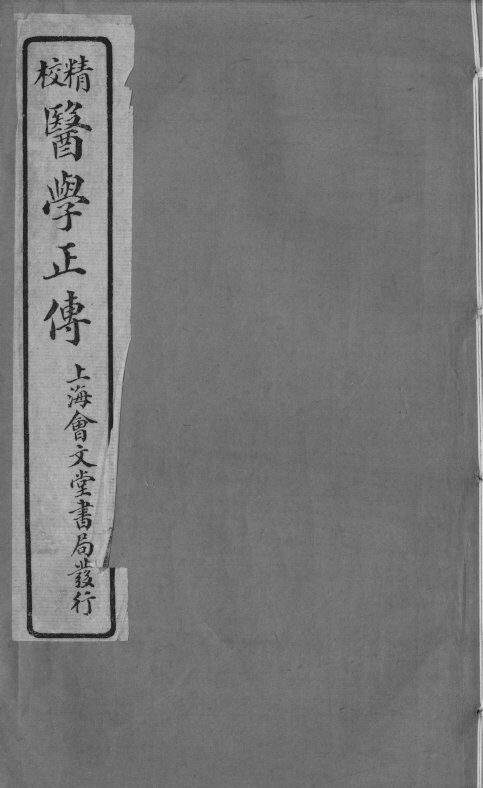 精校
醫學正傳
上海會文堂書局發行